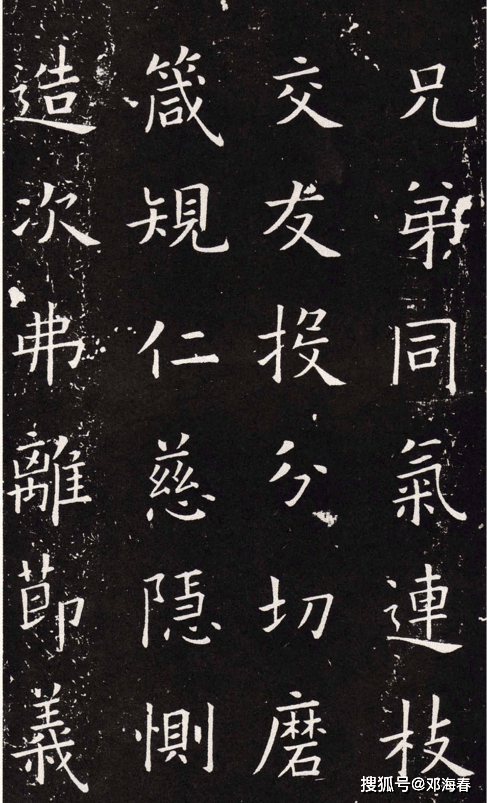 兄弟同氣連枝
交友投分切磨
箴規仁慈隱惻
造次弗離節義
搜狐号@邓海春